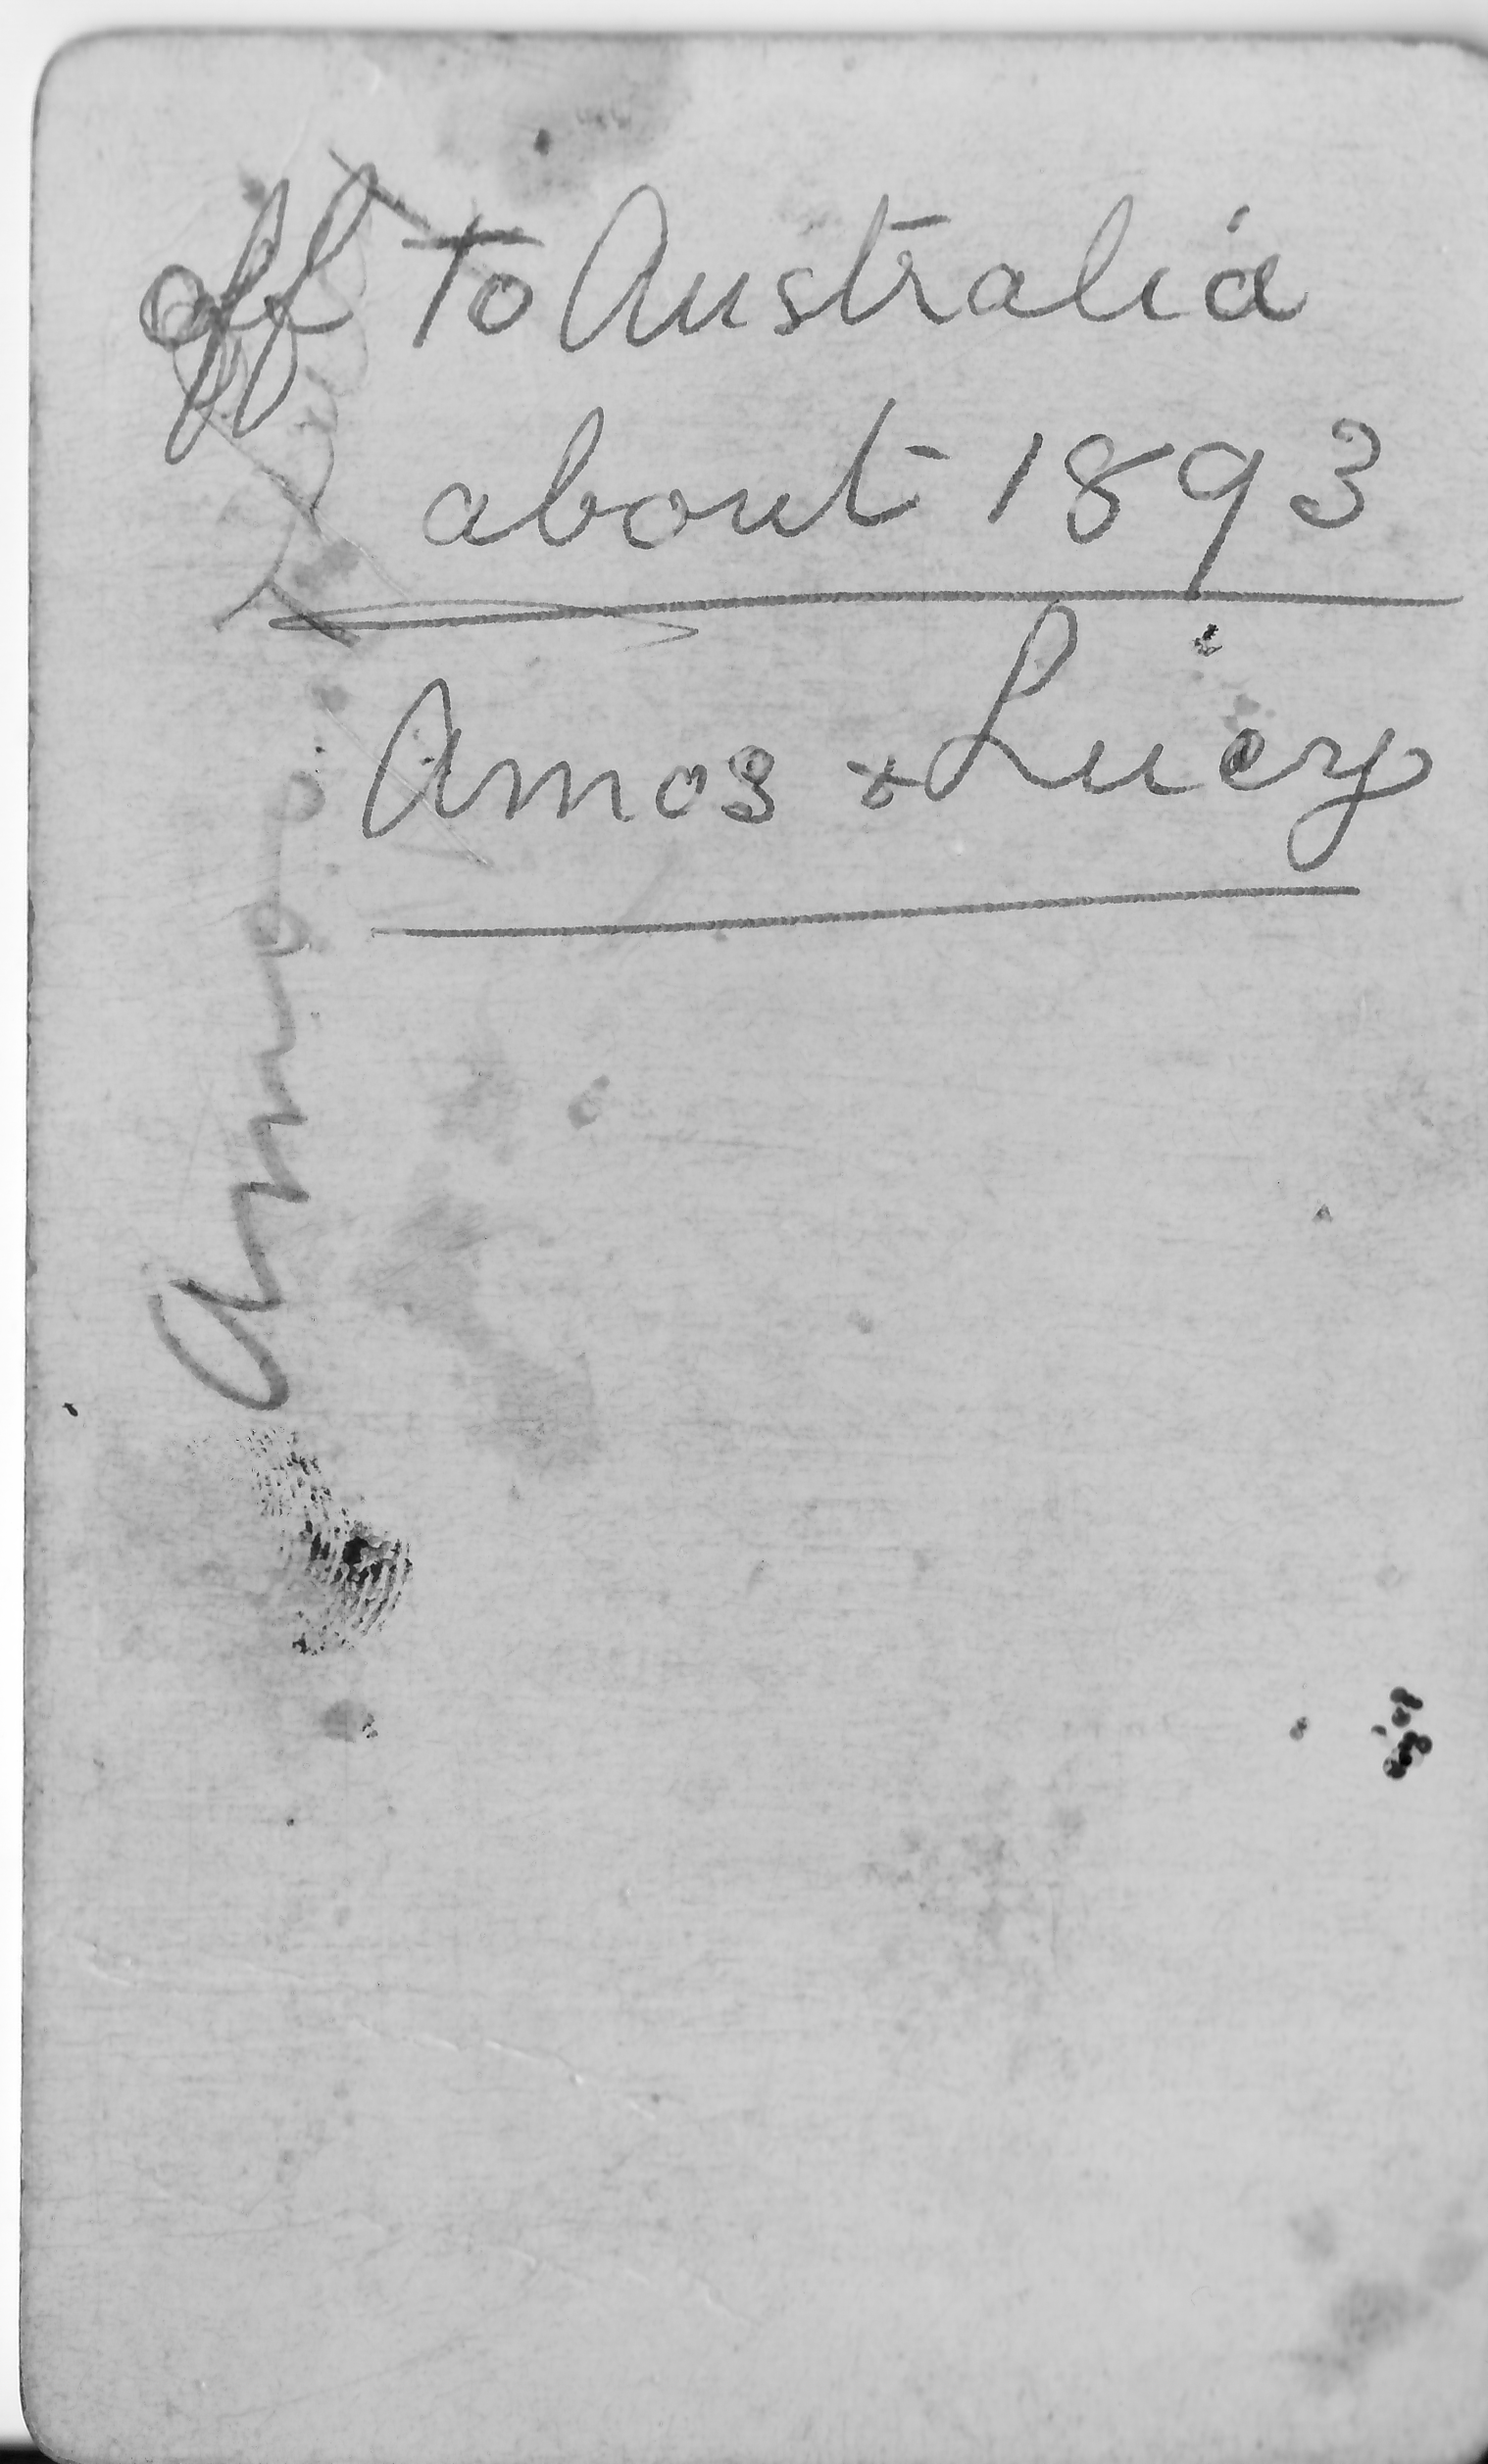 off To Australia
about 1893
Amos & Lucy
Amos